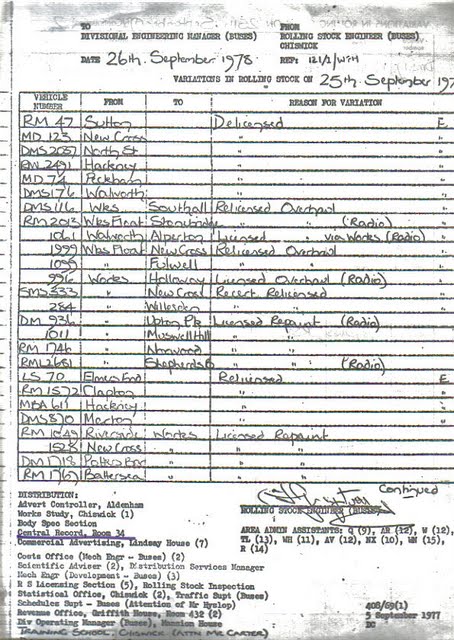 TO FROM
DIVISIONAL ENGINEERING MANAGER (BUSES) ROLLING STOCK ENGINEER (BUSES)
CHISWICK
DATE 26th September 1978 REF: 121/2/WFH
VARIATIONS IN ROLLING STOCK ON 25th September 197
VEHICLE NUMBER FROM TO REASON FOR VARIATION
RM 47 Sutton Delicensed E
MD 123 New Cross " "
DMS 2037 North St " "
RML 2491 Hackney " "
MD 74 Peckham " "
DMS 176 Walworth " "
DMS 116 Wks Southall Relicensed Overhaul "
RM 2013 Wks Float Stonebridge " " (Radio) "
1061 Walworth Alperton Licensed " via Works (Radio) "
1999 Wks Float New Cross Relicensed Overhaul "
1099 " Fulwell " " "
996 Works Holloway Licensed Overhaul (Radio) "
SMS 333 " New Cross Recert. Relicensed "
284 " Willesden " " "
DM 936 " Upton Pk Licensed Repaint (Radio) "
1011 " Muswell Hill " " "
RM 1746 " Norwood " " "
RML 2681 " Shepherds B " " (Radio) "
LS 70 Elmers End Relicensed E
RM 1572 Clapton " "
MBA 611 Hackney " "
DMS 870 Merton " "
RM 1849 Riverside Works Licensed Repaint "
1528 New Cross " " " "
DM 1718 Potters Bar " " " "
RM 1767 Battersea " " " "
Continued
DISTRIBUTION:
Advert Controller, Aldenham
Works Study, Chiswick (1)
Body Spec Section
Central Record, Room 34
Commercial Advertising, Lindsey House (7)
Costs Office (Mech Engr - Buses) (2)
Scientific Adviser (2), Distribution Services Manager
Mech Engr (Development - Buses) (3)
R S Licensing Section (5), Rolling Stock Inspection
Statistical Office, Chiswick (2), Traffic Supt (Buses)
Schedules Supt - Buses (Attention of Mr Hyslop)
Revenue Office, Griffith House, Room 432 (2)
Div Operating Manager (Buses), Mansion House
TRAINING SCHOOL, CHISWICK (ATTN MR CARTER)
ROLLING STOCK ENGINEER (BUSES)
AREA ADMIN ASSISTANTS: Q (9), AR (12), W (12),
TL (13), WH (11), AV (12), NX (10), WN (15),
R (14)
408/69(1)
5 September 1977